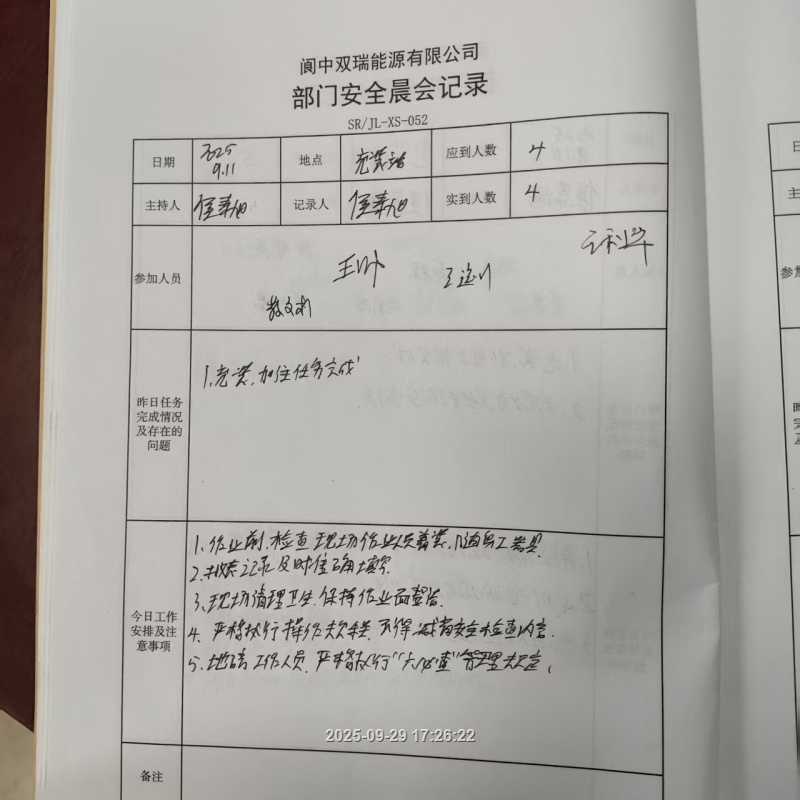 阆中双瑞能源有限公司
部门安全晨会记录
SR/JL-XS-052
日期 2025 9.11 地点 充装站 应到人数 4
主持人 记录人 实到人数 4
参加人员
昨日任务完成情况及存在的问题
1、充装、加注任务完成
今日工作安排及注意事项
1、作业前、检查现场作业人员着装、随身工器具
2、记录及时准确填写
3、现场清理卫生、保持作业面整洁、
4、严格执行操作规程、不得减省安全检查内容、
5、地磅工作人员、严格执行“六必查”管理规定、
备注
2025-09-29 17:26:22